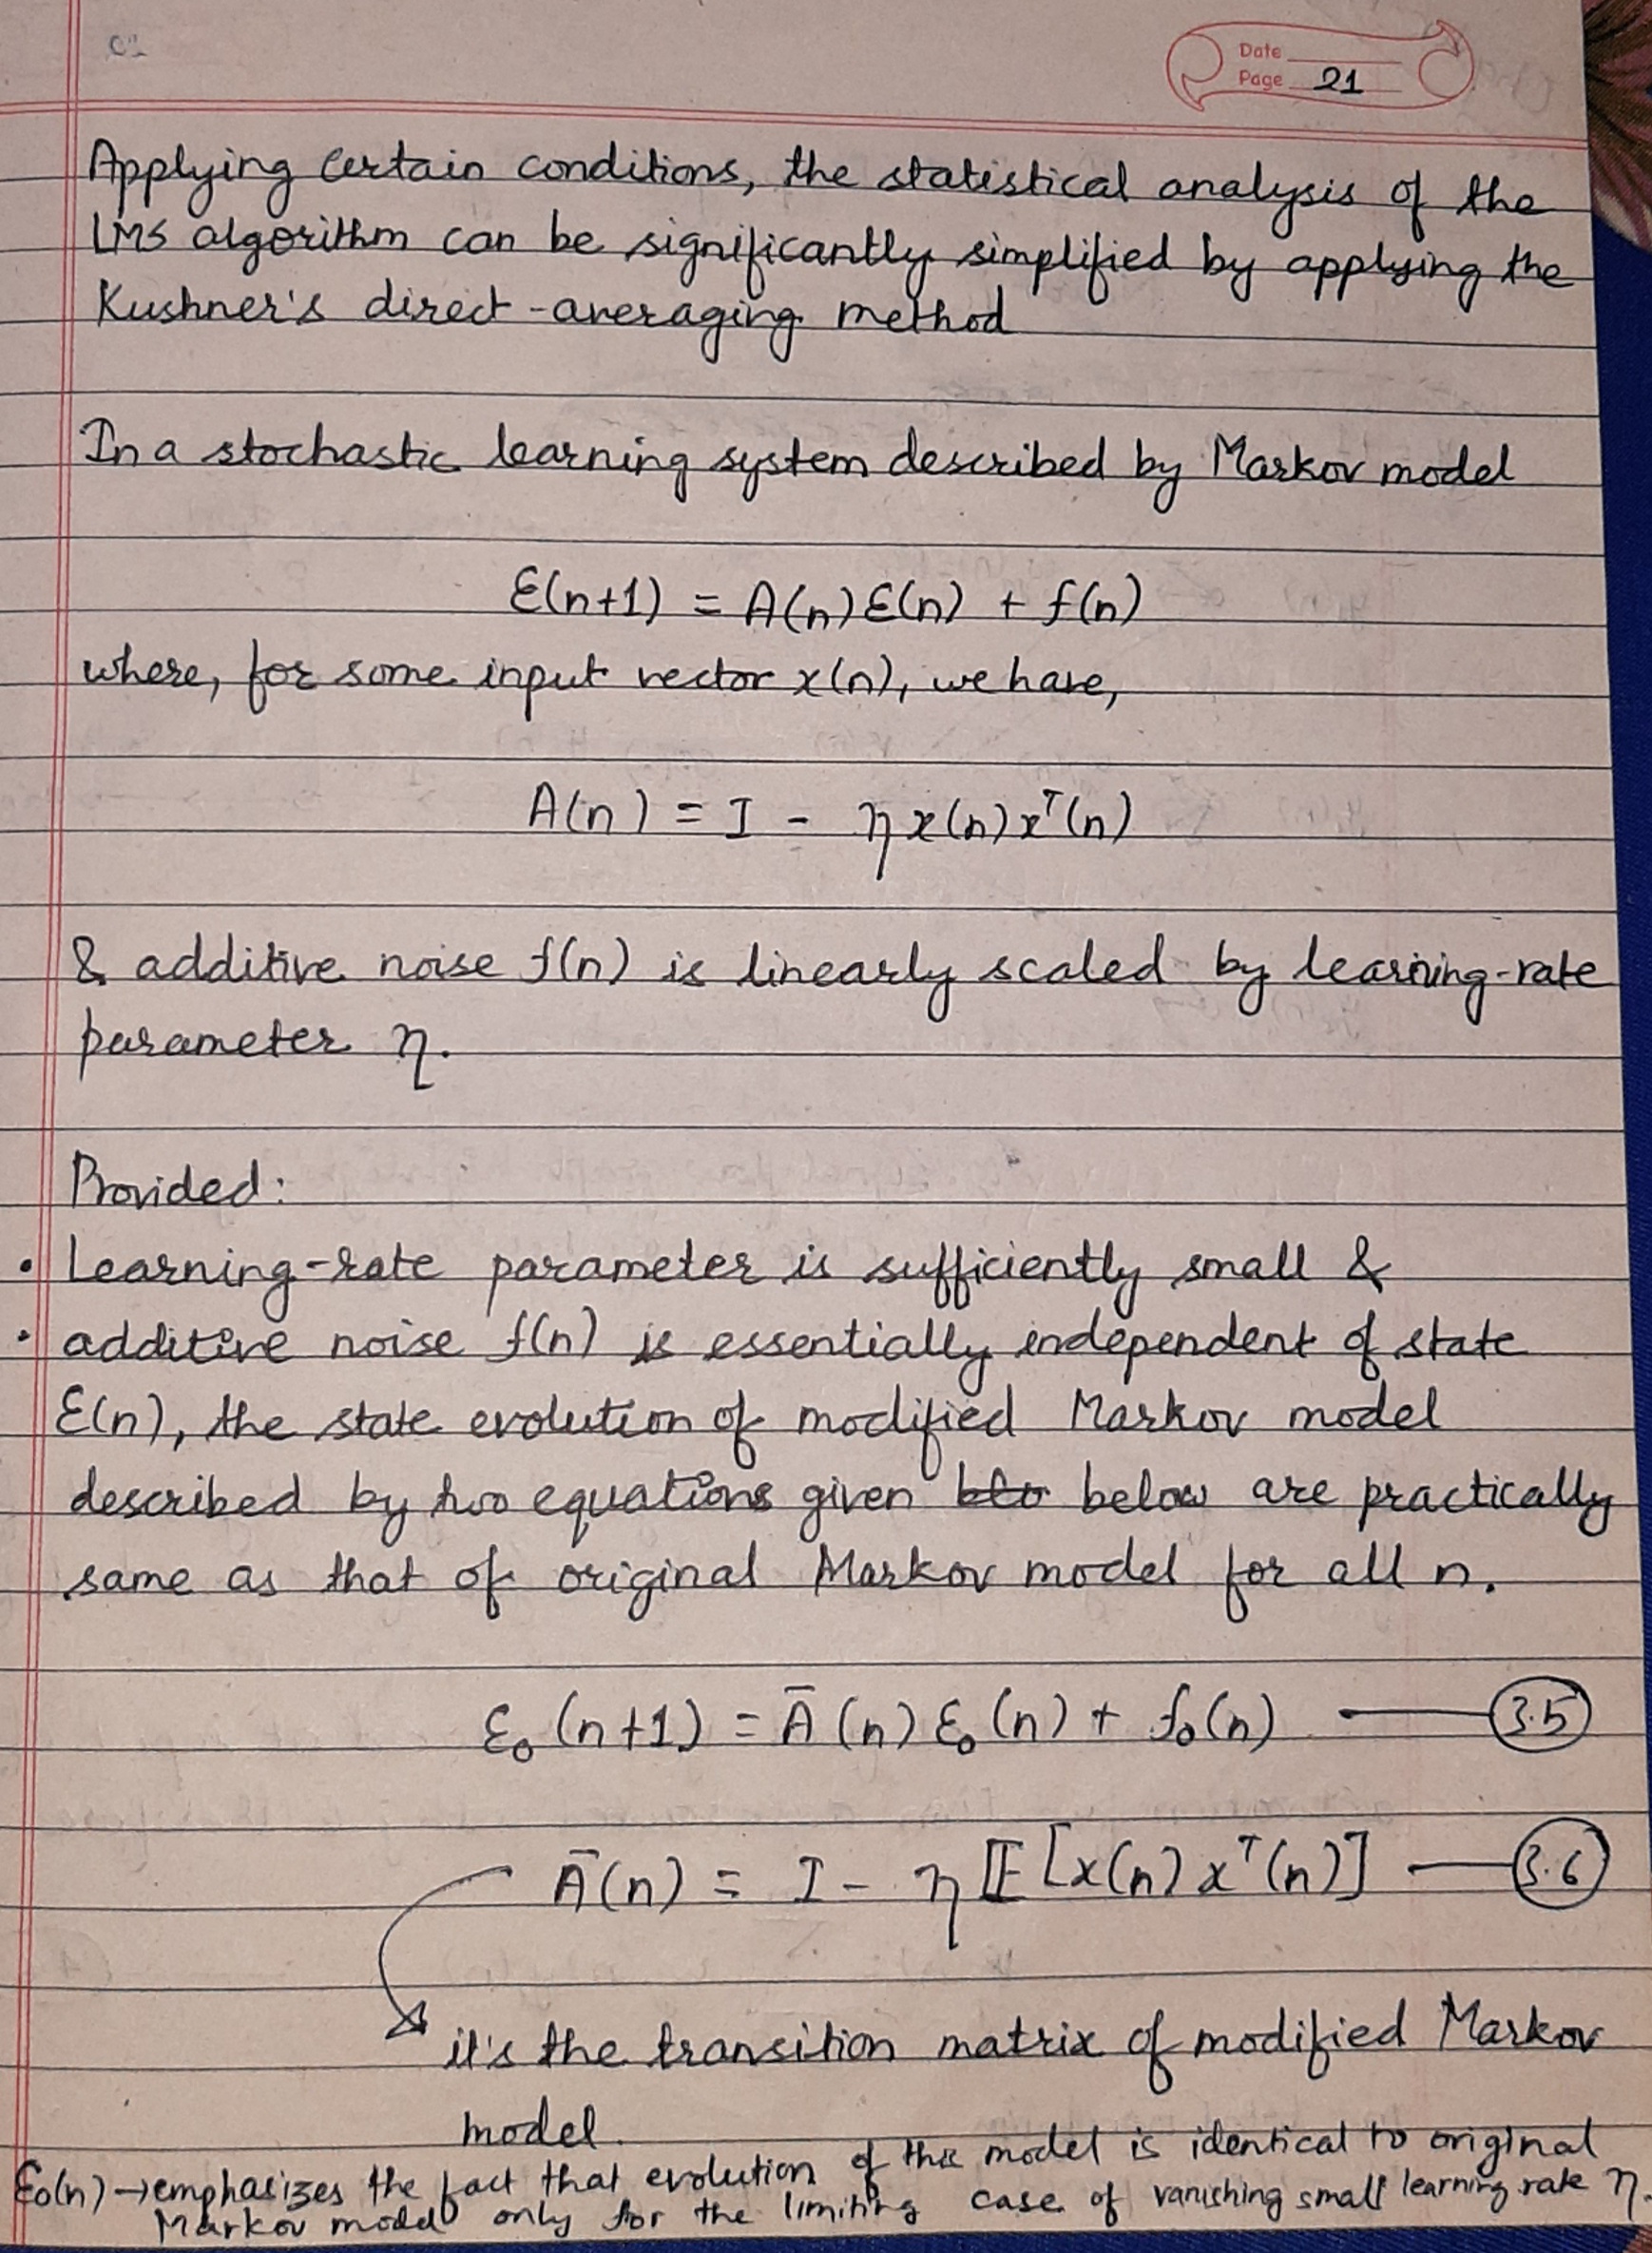 Date
Page 21
Applying certain conditions, the statistical analysis of the
LMS algorithm can be significantly simplified by applying the
Kushner's direct-averaging method
In a stochastic learning system described by Markov model
Ɛ(n+1) = A(n)Ɛ(n) + f(n)
where, for some input vector x(n), we have,
A(n) = I - ηx(n)xᵀ(n)
& additive noise f(n) is linearly scaled by learning-rate
parameter η.
Provided:
• Learning-rate parameter is sufficiently small &
• additive noise f(n) is essentially independent of state
Ɛ(n), the state evolution of modified Markov model
described by two equations given below are practically
same as that of original Markov model for all n.
Ɛ₀(n+1) = Ā(n)Ɛ₀(n) + f₀(n) — 3.5
Ā(n) = I - η𝔼[x(n)xᵀ(n)] — 3.6
it's the transition matrix of modified Markov
model.
Ɛ₀(n) → emphasizes the fact that evolution of this model is identical to original
Markov model only for the limiting case of vanishing small learning rate η.